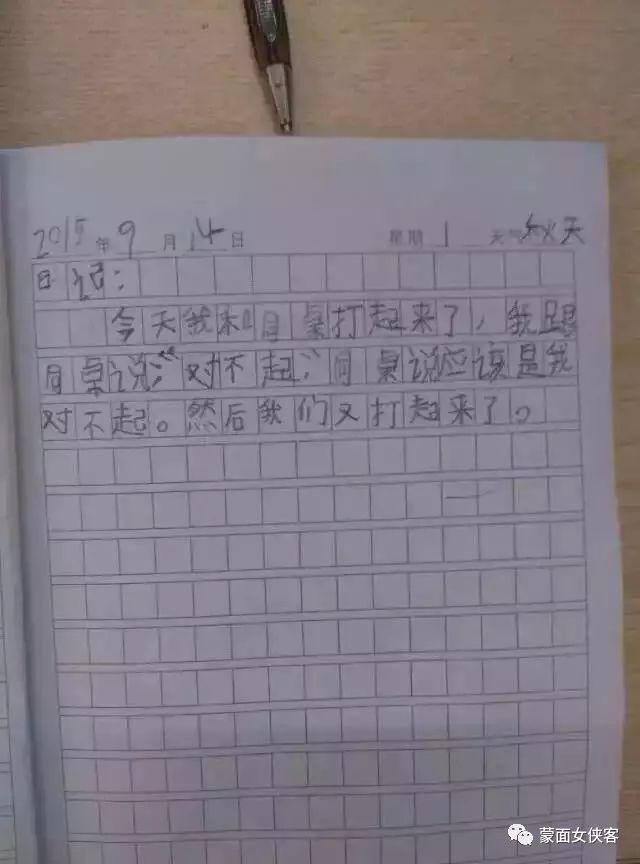 2015年9月14日 星期1 天气秋天
日记:
今天我和同桌打起来了,我跟
同桌说:“对不起;”同桌说应该是我
对不起。然后我们又打起来了。
蒙面女侠客